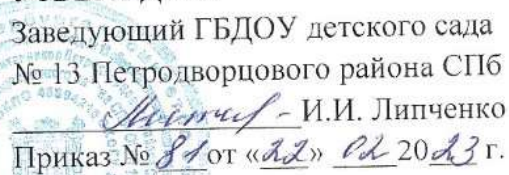 Заведующий ГБДОУ детского сада
№ 13 Петродворцового района СПб
- И.И. Липченко
Приказ № 81 от «22» 02 2023 г.